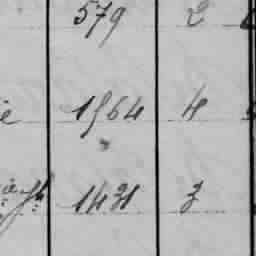 579 2
1564 4
1431 3